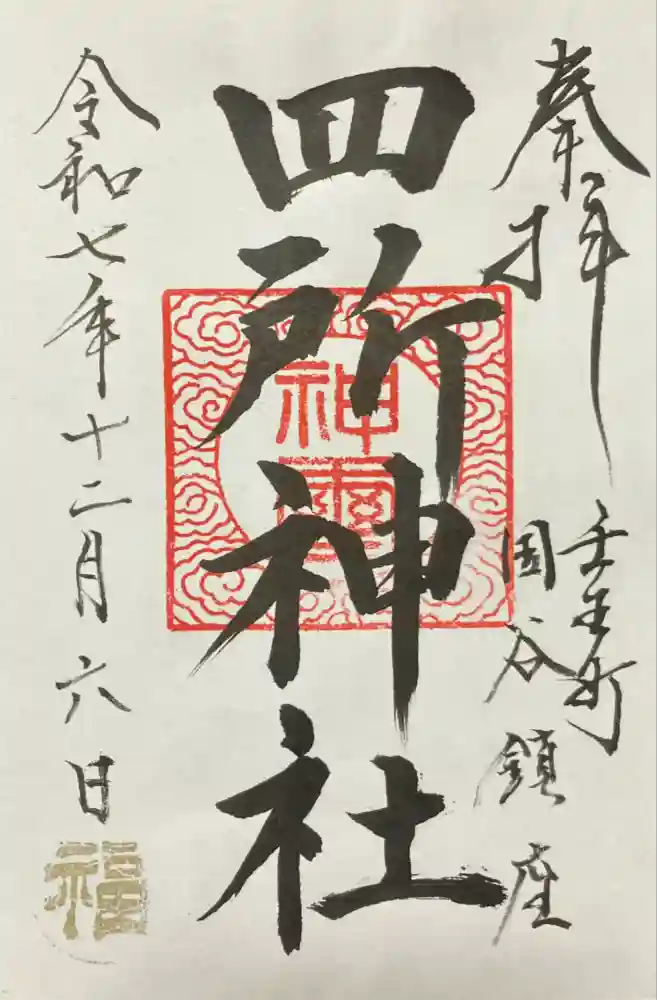 奉拝
壬生町
国谷鎮座
四所神社
神
令和七年十二月六日
福